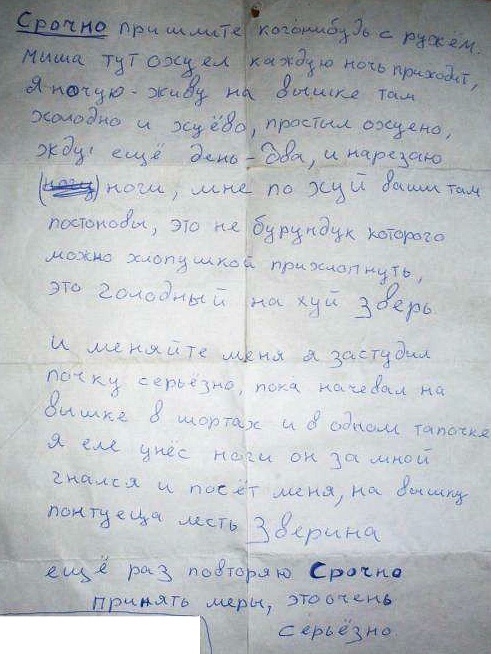 Срочно пришлите кого нибудь с ружём.
миша тут охуел каждую ночь приходит,
я ночую-живу на вышке там
холодно и хуёво, простыл охуено,
жду ещё день-два, и нарезаю
(ногу) ноги, мне по хуй ваши там
постоновы, это не бурундук которого
можно хлопушкой прихлопнуть,
это голодный на хуй зверь
и меняйте меня я застудил
почку серьёзно, пока начевал на
вышке в шортах и в одном тапочке
я еле унёс ноги он за мной
гнался и посёт меня, на вышку
понтуеца лесть Зверина
ещё раз повторяю Срочно
принять меры, это очень
серьёзно.